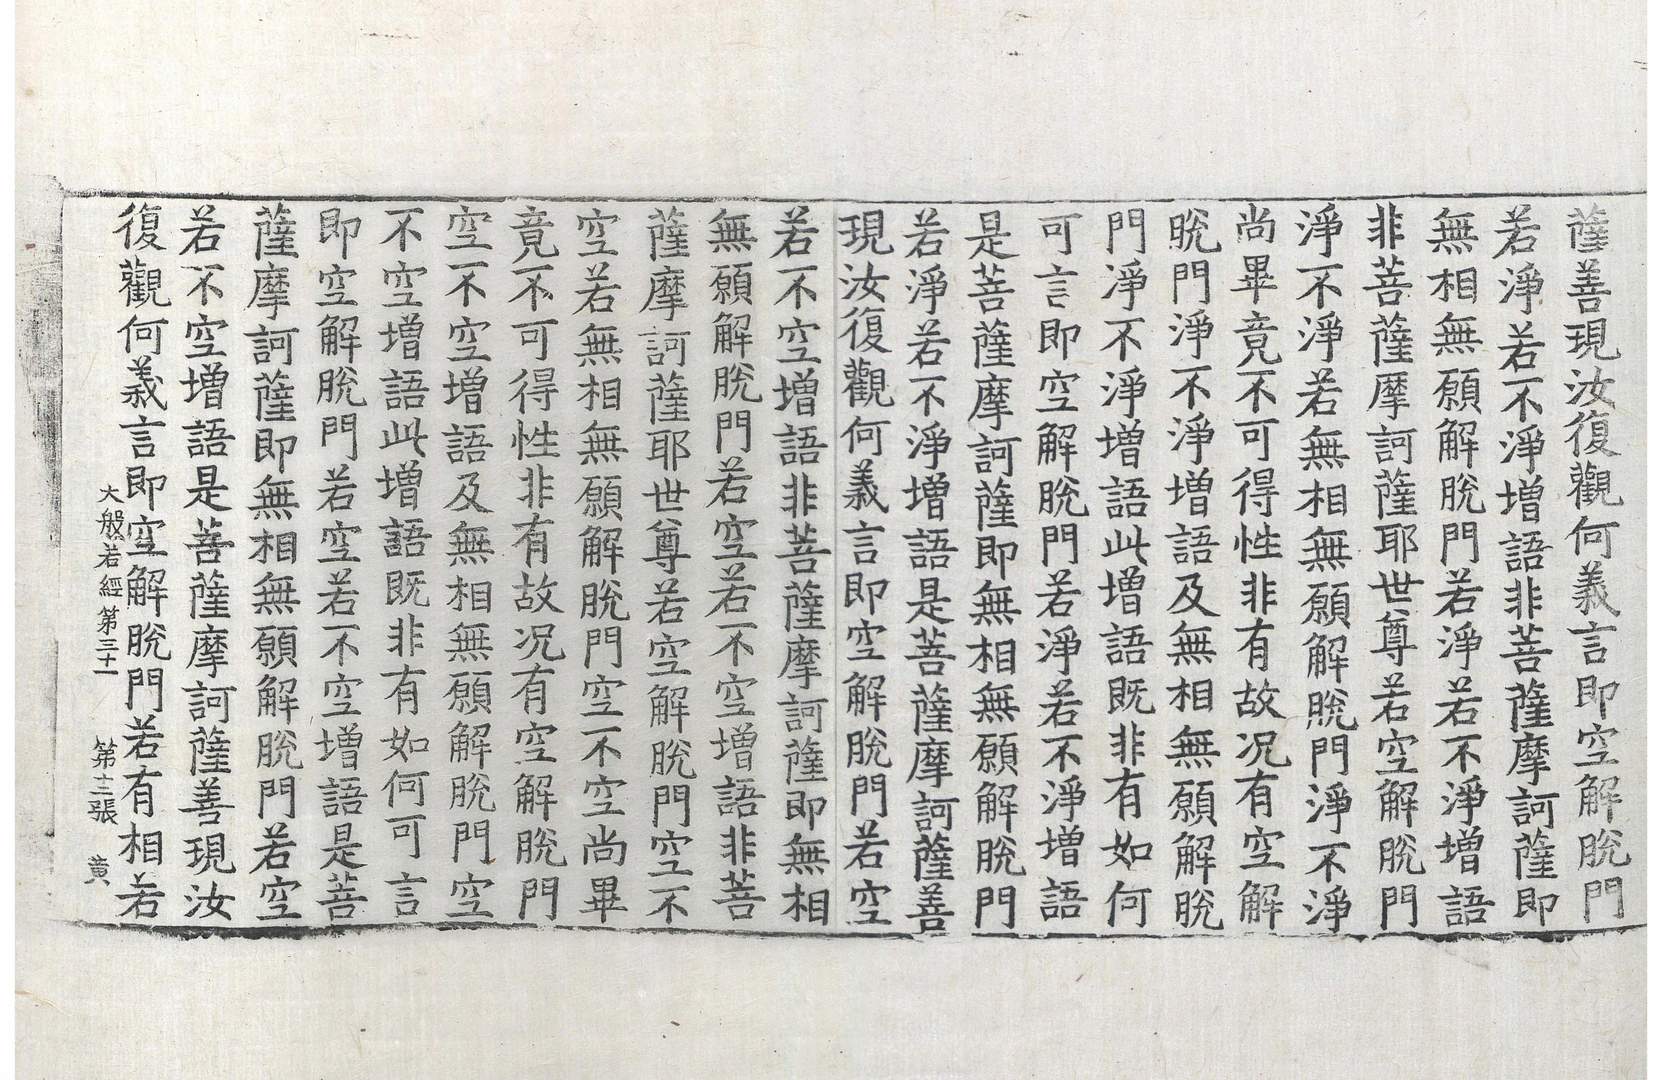 薩善現汝復觀何義言即空解脫門
若淨若不淨增語非菩薩摩訶薩即
無相無願解脫門若淨若不淨增語
非菩薩摩訶薩耶世尊若空解脫門
淨不淨若無相無願解脫門淨不淨
尚畢竟不可得性非有故况有空解
脫門淨不淨增語及無相無願解脫
門淨不淨增語此增語既非有如何
可言即空解脫門若淨若不淨增語
是菩薩摩訶薩即無相無願解脫門
若淨若不淨增語是菩薩摩訶薩善
現汝復觀何義言即空解脫門若空
若不空增語非菩薩摩訶薩即無相
無願解脫門若空若不空增語非菩
薩摩訶薩耶世尊若空解脫門空不
空若無相無願解脫門空不空尚畢
竟不可得性非有故况有空解脫門
空不空增語及無相無願解脫門空
不空增語此增語既非有如何可言
即空解脫門若空若不空增語是菩
薩摩訶薩即無相無願解脫門若空
若不空增語是菩薩摩訶薩善現汝
復觀何義言即空解脫門若有相若
大般若經第三十一 第十三張 黃